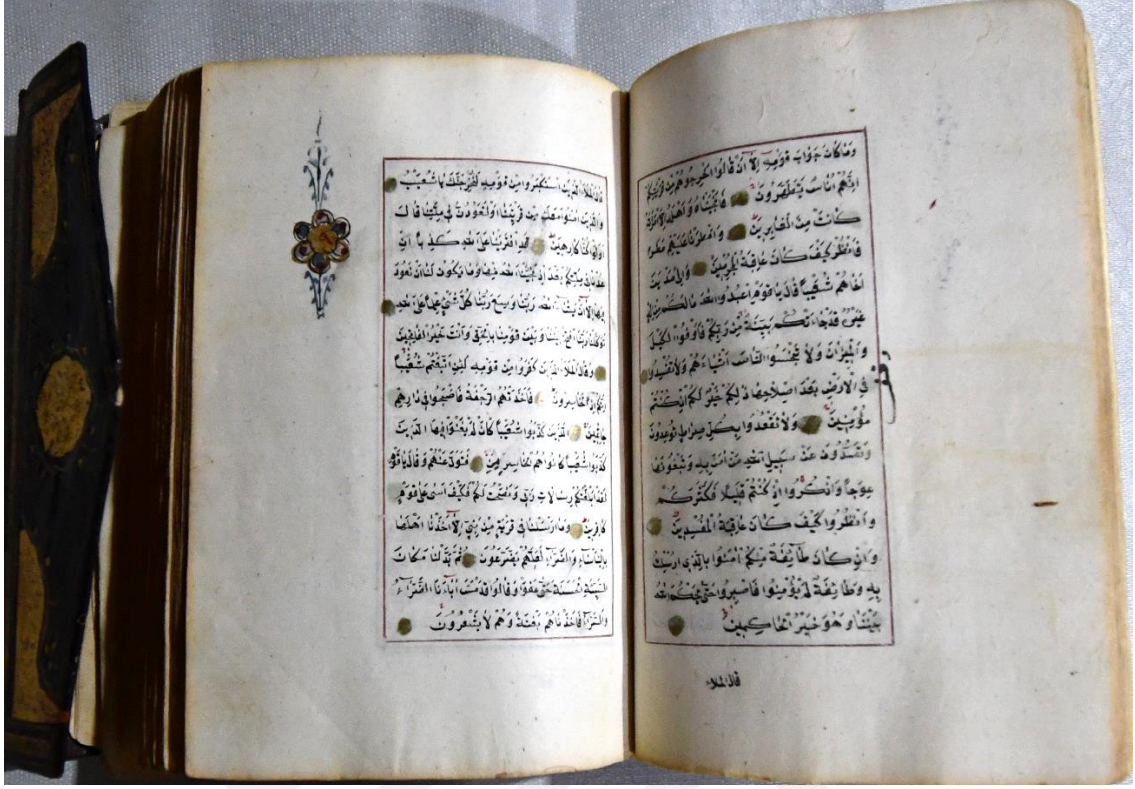 وَمَا كَانَ جَوَابَ قَوْمِهِ اِلَّا اَنْ قَالُوا اَخْرِجُوهُمْ مِنْ قَرْيَتِكُمْ
اِنَّهُمْ اُنَاسٌ يَتَطَهَّرُونَ فَاَنْجَيْنَاهُ وَاَهْلَهُ اِلَّا امْرَاَتَهُ
كَانَتْ مِنَ الْغَابِرِينَ وَاَمْطَرْنَا عَلَيْهِمْ مَطَرًا
فَانْظُرْ كَيْفَ كَانَ عَاقِبَةُ الْمُجْرِمِينَ وَاِلٰى مَدْيَنَ
اَخَاهُمْ شُعَيْبًا قَالَ يَا قَوْمِ اعْبُدُوا اللهَ مَا لَكُمْ مِنْ اِلٰهٍ
غَيْرُهُ قَدْ جَاءَتْكُمْ بَيِّنَةٌ مِنْ رَبِّكُمْ فَاَوْفُوا الْكَيْلَ
وَالْمِيزَانَ وَلَا تَبْخَسُوا النَّاسَ اَشْيَاءَهُمْ وَلَا تُفْسِدُوا
فِي الْاَرْضِ بَعْدَ اِصْلَاحِهَا ذٰلِكُمْ خَيْرٌ لَكُمْ اِنْ كُنْتُمْ
مُؤْمِنِينَ وَلَا تَقْعُدُوا بِكُلِّ صِرَاطٍ تُوعِدُونَ
وَتَصُدُّونَ عَنْ سَبِيلِ اللهِ مَنْ اٰمَنَ بِهِ وَتَبْغُونَهَا
عِوَجًا وَاذْكُرُوا اِذْ كُنْتُمْ قَلِيلًا فَكَثَّرَكُمْ
وَانْظُرُوا كَيْفَ كَانَ عَاقِبَةُ الْمُفْسِدِينَ
وَاِنْ كَانَ طَائِفَةٌ مِنْكُمْ اٰمَنُوا بِالَّذِي اُرْسِلْتُ
بِهِ وَطَائِفَةٌ لَمْ يُؤْمِنُوا فَاصْبِرُوا حَتّٰى يَحْكُمَ اللهُ
بَيْنَنَا وَهُوَ خَيْرُ الْحَاكِمِينَ
قال الملاء
قَالَ الْمَلَاُ الَّذِينَ اسْتَكْبَرُوا مِنْ قَوْمِهِ لَنُخْرِجَنَّكَ يَا شُعَيْبُ
وَالَّذِينَ اٰمَنُوا مَعَكَ مِنْ قَرْيَتِنَا اَوْ لَتَعُودُنَّ فِي مِلَّتِنَا قَالَ
اَوَلَوْ كُنَّا كَارِهِينَ قَدِ افْتَرَيْنَا عَلَى اللهِ كَذِبًا اِنْ
عُدْنَا فِي مِلَّتِكُمْ بَعْدَ اِذْ نَجّٰينَا اللهُ مِنْهَا وَمَا يَكُونُ لَنَا اَنْ نَعُودَ
فِيهَا اِلَّا اَنْ يَشَاءَ اللهُ رَبُّنَا وَسِعَ رَبُّنَا كُلَّ شَيْءٍ عِلْمًا عَلَى اللهِ
تَوَكَّلْنَا رَبَّنَا افْتَحْ بَيْنَنَا وَبَيْنَ قَوْمِنَا بِالْحَقِّ وَاَنْتَ خَيْرُ الْفَاتِحِينَ
وَقَالَ الْمَلَاُ الَّذِينَ كَفَرُوا مِنْ قَوْمِهِ لَئِنِ اتَّبَعْتُمْ شُعَيْبًا
اِنَّكُمْ اِذًا لَخَاسِرُونَ فَاَخَذَتْهُمُ الرَّجْفَةُ فَاَصْبَحُوا فِي دَارِهِمْ
جَاثِمِينَ الَّذِينَ كَذَّبُوا شُعَيْبًا كَاَنْ لَمْ يَغْنَوْا فِيهَا الَّذِينَ
كَذَّبُوا شُعَيْبًا كَانُوا هُمُ الْخَاسِرِينَ فَتَوَلّٰى عَنْهُمْ وَقَالَ يَا قَوْمِ
لَقَدْ اَبْلَغْتُكُمْ رِسَالَاتِ رَبِّي وَنَصَحْتُ لَكُمْ فَكَيْفَ اٰسٰى عَلٰى قَوْمٍ
كَافِرِينَ وَمَا اَرْسَلْنَا فِي قَرْيَةٍ مِنْ نَبِيٍّ اِلَّا اَخَذْنَا اَهْلَهَا
بِالْبَاْسَاءِ وَالضَّرَّاءِ لَعَلَّهُمْ يَضَّرَّعُونَ ثُمَّ بَدَّلْنَا مَكَانَ
السَّيِّئَةِ الْحَسَنَةَ حَتّٰى عَفَوْا وَقَالُوا قَدْ مَسَّ اٰبَاءَنَا الضَّرَّاءُ
وَالسَّرَّاءُ فَاَخَذْنَاهُمْ بَغْتَةً وَهُمْ لَا يَشْعُرُونَ